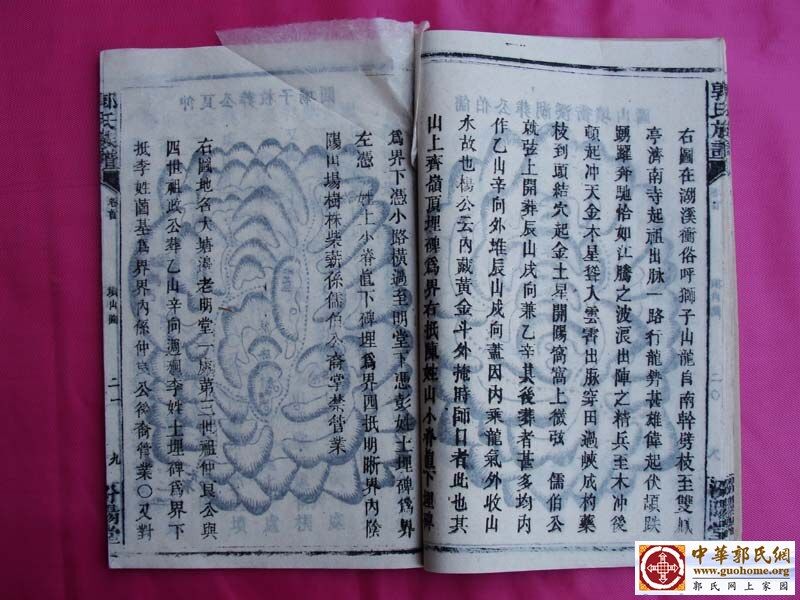 郭氏族譜
右圖在溯溪衝俗呼獅子山龍自南幹劈枝至雙鳳
亭濟南寺起祖出脉一路行龍勢甚雄偉起伏頓跌
踴躍奔馳恰如江騰之波浪出陣之精兵至木冲後
頓起冲天金木星聳入雲霄出脉穿田過峽成芍藥
枝到頭結穴起金土星開陽窩窩上微弦 儒伯公
就弦上開葬辰山戌向兼乙辛其後葬者甚多均內
作乙山辛向外堆辰山戌向蓋因內乘龍氣外收山
水故也楊公云內藏黃金斗外掩時師口者此也其
山上齊嶺頂埋碑為界右抵陳姓山小脊直下埋碑
為界下憑小路橫過至明堂下憑彭姓土埋碑為界
左憑 姓土小脊直下碑埋為界四抵明晰界內陰
陽山場樹林柴薪係儒伯公裔堂禁管業
右圖地名大塘 老明堂一處第三世祖仲良公與
四世祖政公葬乙山辛向週圍李姓土埋碑為界下
抵李姓菌基為界界內係仲良公後裔管業〇又對
郭氏族譜
卷首
墳山圖
二一
九
中華郭氏網
www.guohome.org
郭氏网上家园